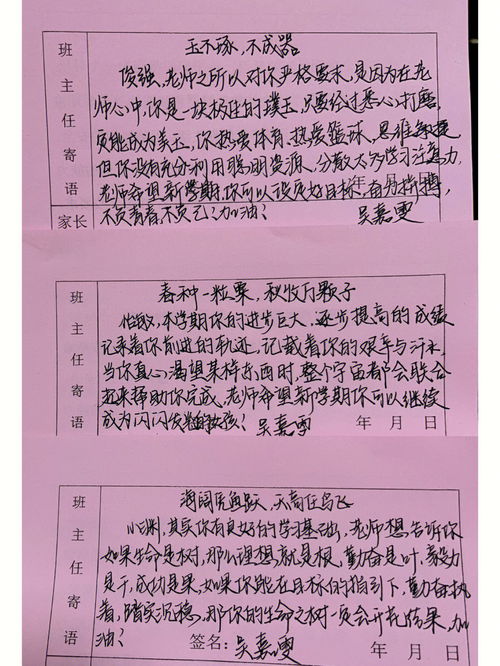 班主任寄语
玉不琢,不成器
俊强,老师之所以对你严格要求,是因为在老
师心中,你是一块极佳的璞玉,只要经过悉心打磨,
定能成为美玉,你热爱体育,热爱篮球,思维敏捷
但你没有充分利用聪明资源,分散太多学习注意力,
老师希望新学期,你可以设定好目标,奋力拼搏,
年 月 日
不负青春不负己!加油!
吴嘉雯
家长
班主任寄语
春种一粒粟,秋收万颗子
本学期你的进步巨大,逐步提高的成绩
记录着你前进的轨迹,记载着你的艰辛与汗水,
当你真心渴望某样东西时,整个宇宙都会联合
起来帮助你完成,老师希望新学期你可以继续
成为闪闪发光的女孩!吴嘉雯
年 月 日
班主任寄语
海阔凭鱼跃,天高任鸟飞
小渊,其实你有良好的学习基础,老师想告诉你
如果生命是树,那么理想就是根,勤奋是叶,毅力
是干,成功是果,如果你能在目标的指引下,勤奋执
着,踏实沉稳,那你的生命之树一定会开花结果,加
油!
签名:吴嘉雯 年 月 日